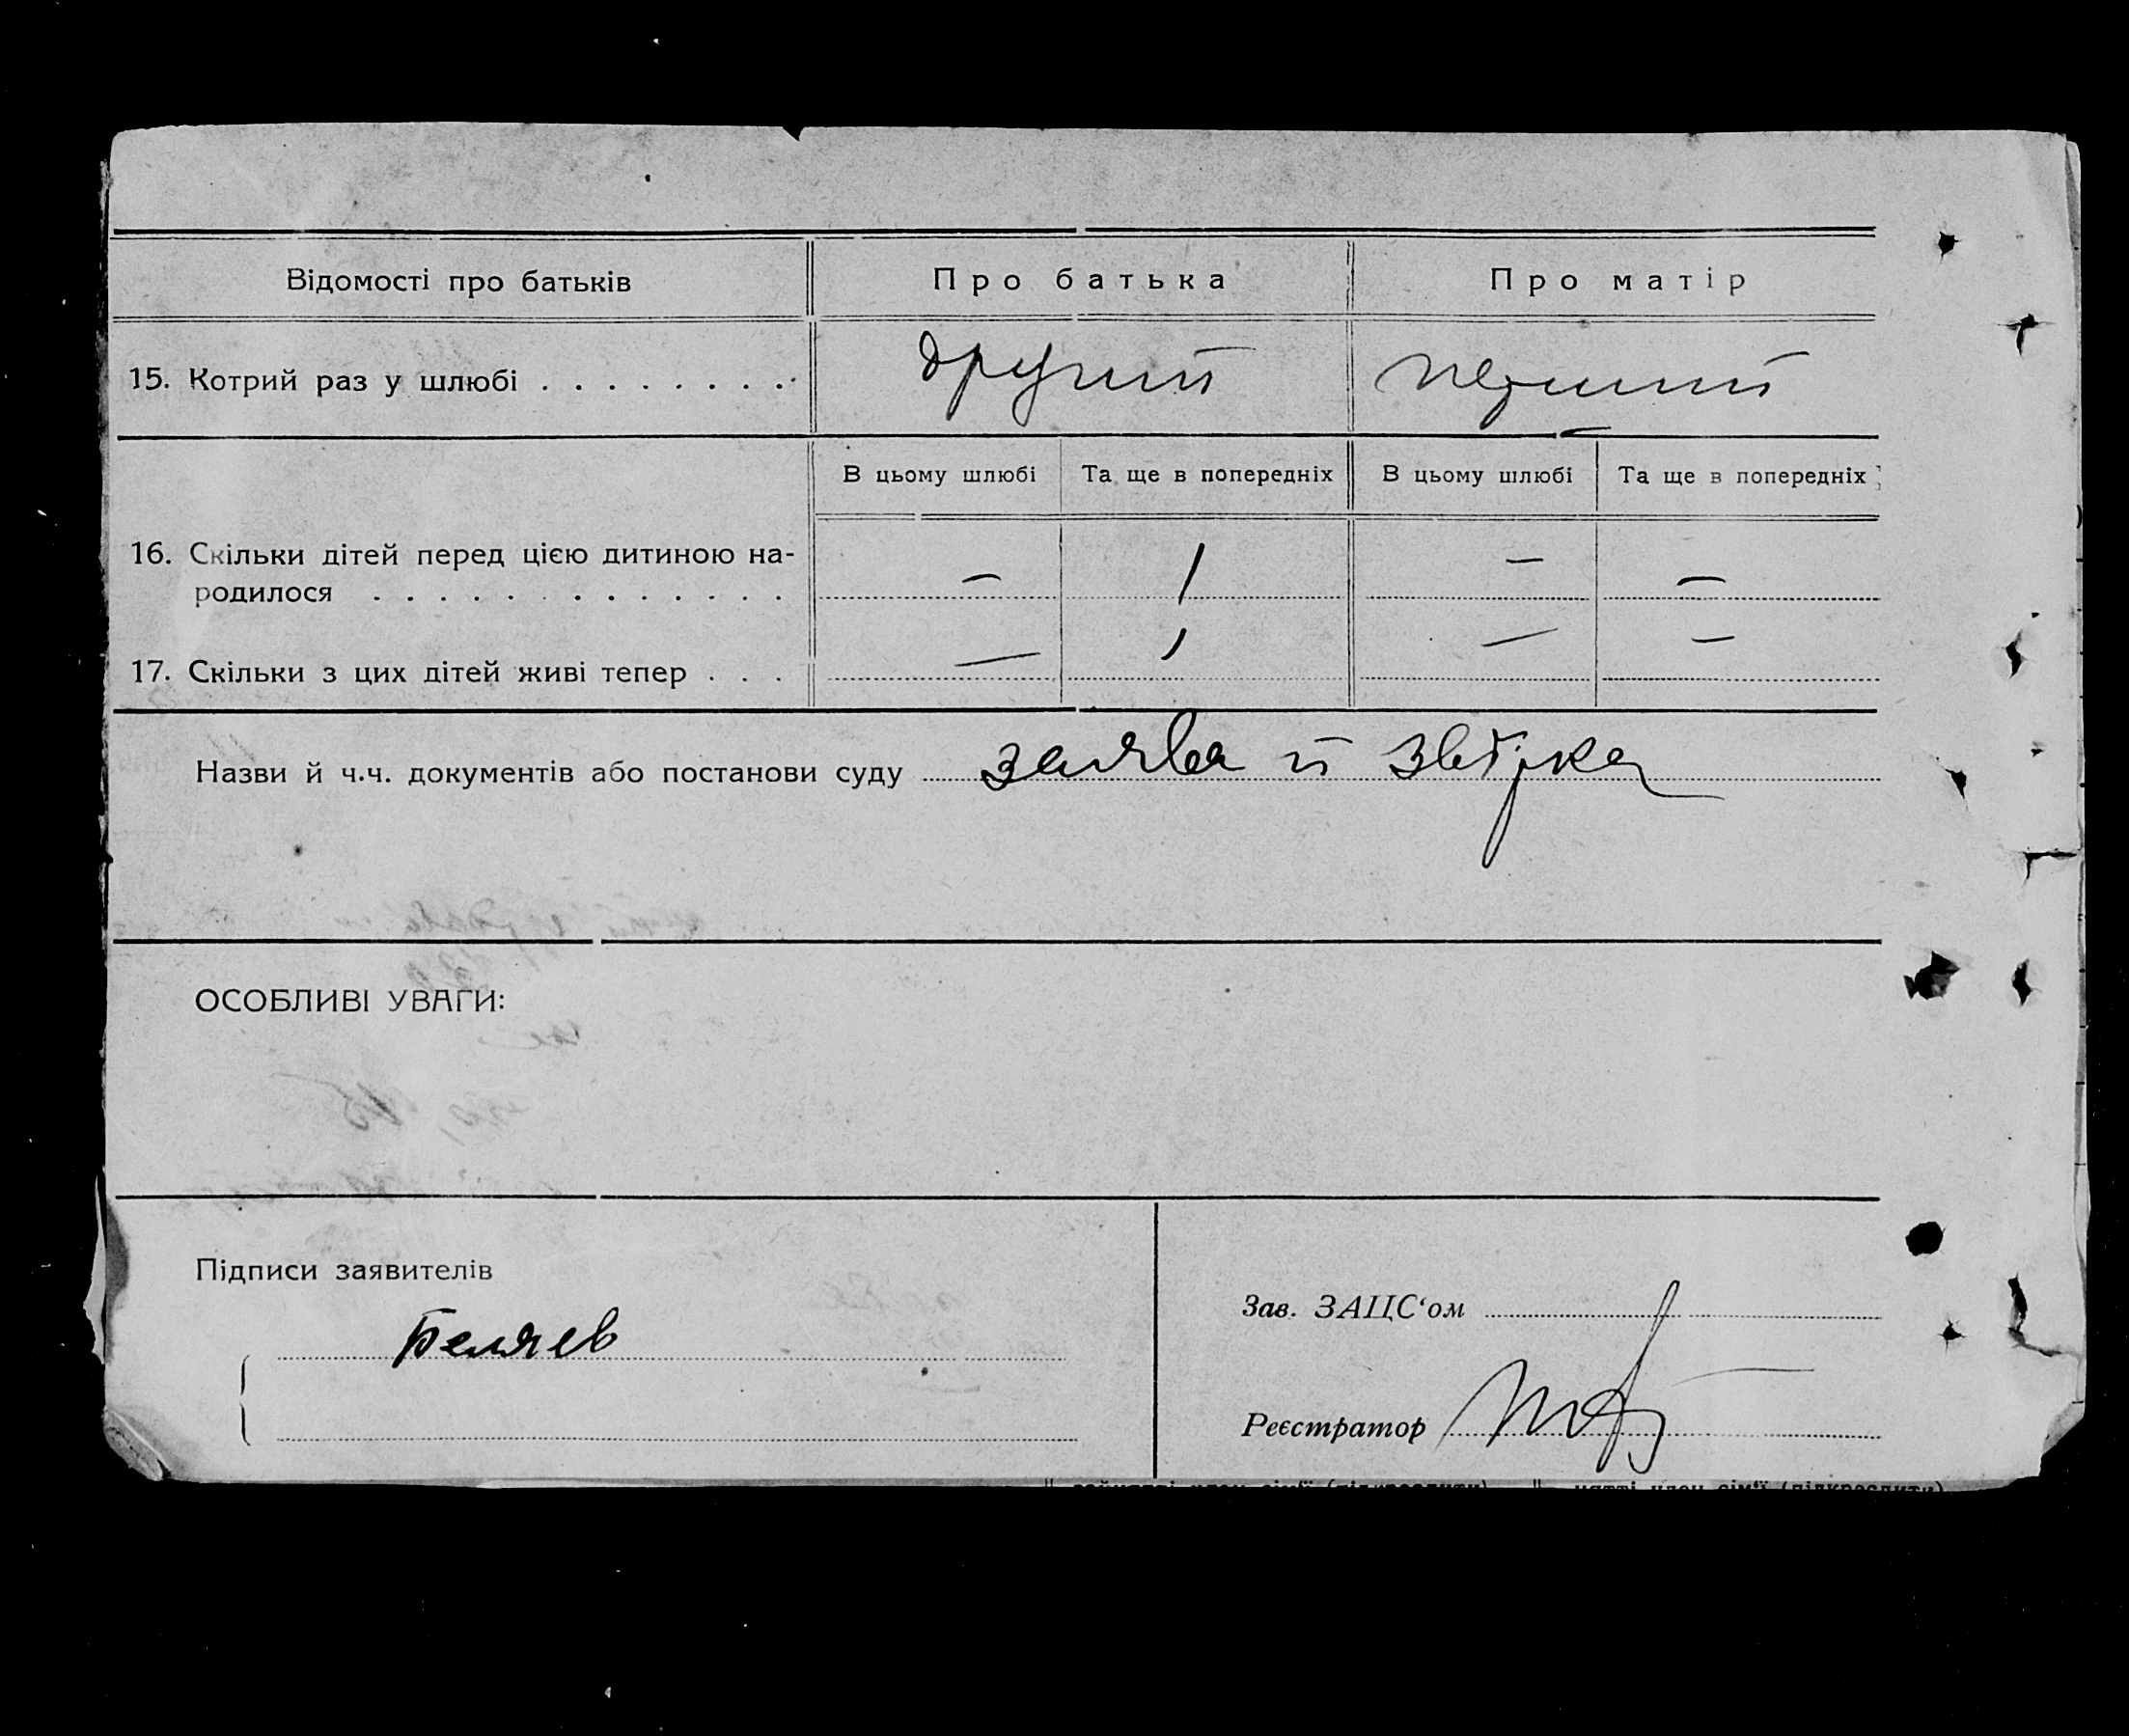 Відомості про батьків Про батька Про матір
15. Котрий раз у шлюбі . . . . . . . . другий перший
В цьому шлюбі Та ще в попередніх В цьому шлюбі Та ще в попередніх
16. Скільки дітей перед цією дитиною на-
родилося . . . . . . . . . . . . . — 1 — —
17. Скільки з цих дітей живі тепер . . . — 1 — —
Назви й ч.ч. документів або постанови суду заява й звірка
ОСОБЛИВІ УВАГИ:
Підписи заявителів
Беляев
Зав. ЗАЦС‘ом
Реєстратор
член сім'ї (підкреслити) член сім'ї (підкреслити)